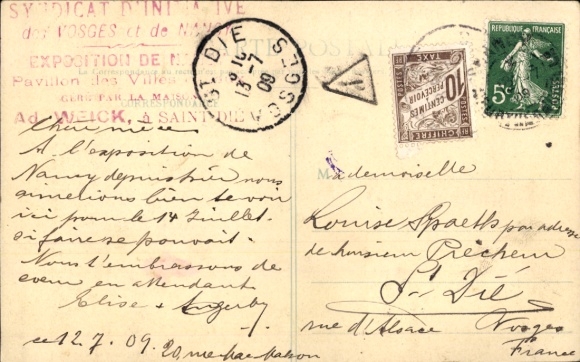 SYNDICAT D'INITIATIVE
des VOSGES et de NANCY
EXPOSITION DE NANCY
Pavillon des Villes d'
GÉRÉ PAR LA MAISON
Ad. WEICK, à SAINT-DIÉ
CARTE POSTALE
CORRESPONDANCE
ST DIÉ
VOSGES
13-7
09
T
10
CENTIMES
À PERCEVOIR
CHIFFRE TAXE
POSTES
REPUBLIQUE FRANÇAISE
5c
POSTES
Cher
A l'exposition de
Nancy depuis hier nous
aimerions bien te voir
ici pour le 14 Juillet
si faire se pouvait.
Nous t'embrassons de
coeur en attendant
Elise &
ce 12.7.09. 20,
Mademoiselle
Louise Spaeth par adresse
de Monsieur Prêcheur
St Dié
rue d'Alsace Vosges
France